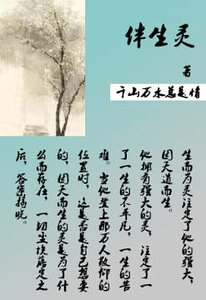 伴生灵
著
千山万木总是情
生而为灵注定了他的强大,
因天道而生。
他拥有强大的灵,注定了一
了一生的不平凡,一生的苦
难。当他登上那万人敬仰的
位置时,这是否是自己想要
的,因天而生的灵是为了什
么而存在,一切尘埃落定之
后,答案揭晓。